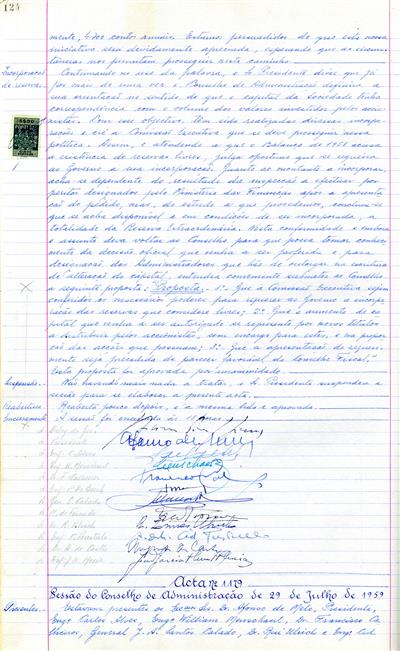 124
mente, 400 contos anuais. Estamos persuadidos de que esta nossa
iniciativa será devidamente apreciada, esperando que as circuns-
tâncias nos permitam prosseguir neste caminho.
Incorporação de reservas.
Continuando no uso da palavra, o Sr. Presidente disse que já
por mais de uma vez o Conselho de Administração definiu a
sua orientação no sentido de que o Capital da Sociedade tenha
correspondência com o volume dos valores investidos pelos accio-
nistas. Com esse objectivo, têm sido realizadas diversas incorpo-
rações e crê a Comissão Executiva que se deve prosseguir nessa
política. Assim, e atendendo a que o Balanço de 1958 acusa
a existência de reservas livres, julga oportuno que se requeira
ao Governo a sua incorporação. Quanto ao montante a incorporar,
acha-se dependente do resultado da inspecção a efectuar por
peritos designados pelo Ministério das Finanças após a apresenta-
ção do pedido, mas, do estudo a que procedemos, concluiu-se
que se acha disponível e em condições de ser incorporada, a
totalidade da Reserva Extraordinária. Nesta conformidade e embora
o assunto deva voltar ao Conselho para que possa tomar conheci-
mento da decisão oficial que venha a ser proferida e para
designação dos Administradores que hão-de outorgar na escritura
de alteração do capital, entendeu conveniente submeter ao Conselho
a seguinte proposta: "Proposta: 1º. Que à Comissão Executiva sejam
conferidos os necessários poderes para requerer ao Governo a incorpo-
ração das reservas que considere livres; 2º. Que o aumento de ca-
pital que venha a ser autorizado se represente por novos títulos
a distribuir pelos accionistas, sem encargo para estes, e na propor-
ção das acções que possuam; 3º. Que a apresentação do requeri-
mento seja precedida de parecer favorável do Conselho Fiscal."
Esta proposta foi aprovada por unanimidade.
Suspensão.- Não havendo mais nada a tratar, o Sr. Presidente suspendeu a
sessão para se elaborar a presente acta.
Reabertura Reaberta pouco depois, foi a mesma lida e aprovada.
Encerramento A sessão foi encerrada às 18 horas.
Acta nº 1179
Sessão do Conselho de Administração de 29 de Julho de 1959
Presentes.- Estavam presentes os Excmos. Srs. Dr. Afonso de Melo, Presidente,
Engº. Carlos Alves, Engº. William Merschaert, Dr. Francisco Ca
General J. A. Santos Calado, Dr. Ruy Ulrich e Engº. Ed.